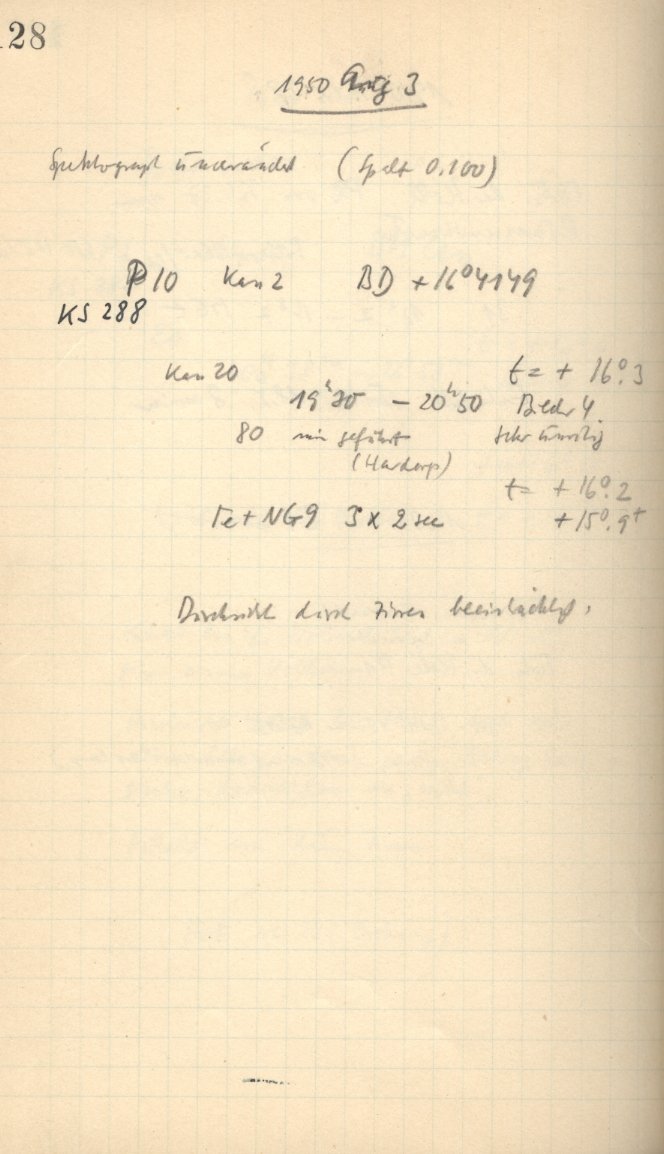 28
1950 Aug 3
Spektrograph unverändert (Spalt 0.100)
P 10 Kas 2 BD +16°4149
KS 288
Kas 20 t = + 16°.3
19ʰ30 – 20ʰ50 Bilder 4
80 min geführt sehr unruhig
(Hardorp)
t = + 16°.2
Fe + NG9 3 x 2 sec + 15°.9
Durchsicht durch Zirren beeinträchtigt.